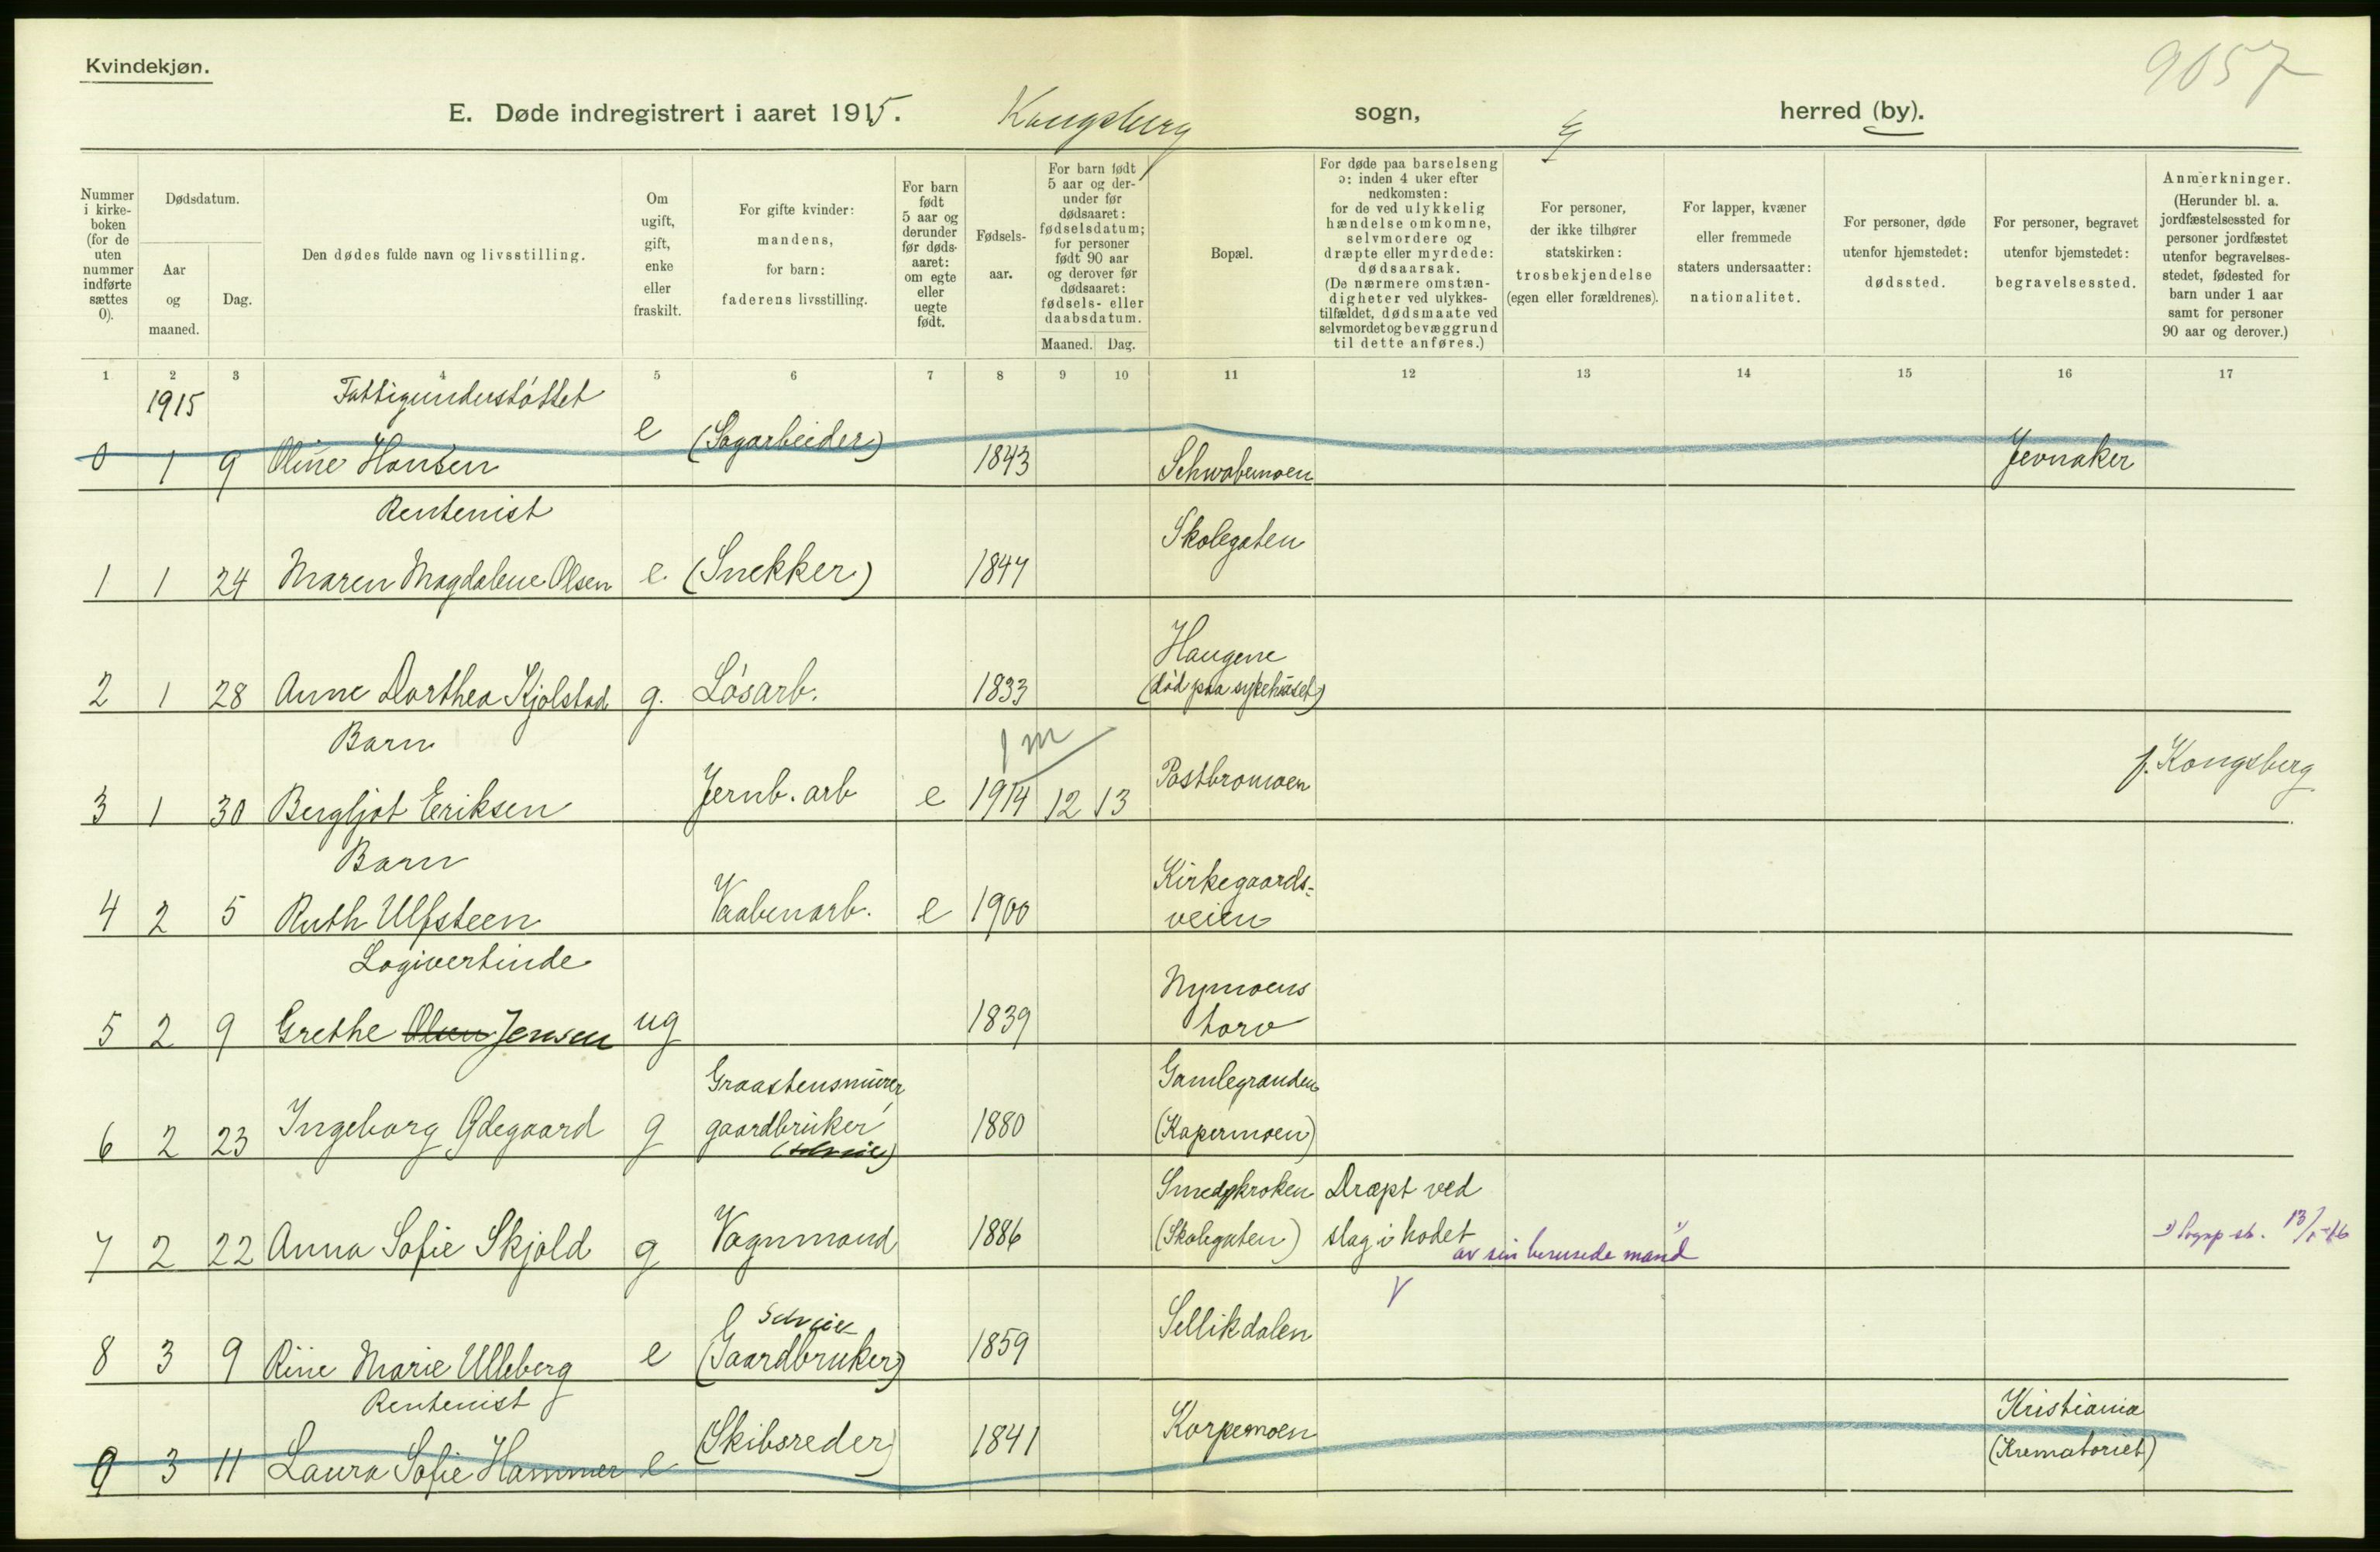 Kvindekjøn.
9657
E. Døde indregistrert i aaret 1915. Kongsberg sogn, herred (by).
Nummer i kirke-boken (for de uten nummer indførte sættes 0).
Dødsdatum.
Aar og maaned.
Dag.
Den dødes fulde navn og livsstilling.
Om ugift, gift, enke eller fraskilt.
For gifte kvinder: mandens, for barn: faderens livsstilling.
For barn født 5 aar og derunder før døds-aaret: om egte eller uegte født.
Fødsels-aar.
For barn født 5 aar og der-under før dødsaaret: fødselsdatum; for personer født 90 aar og derover før dødsaaret: fødsels- eller daabsdatum.
Maaned. Dag.
Bopæl.
For døde paa barselseng ɔ: inden 4 uker efter nedkomsten: for de ved ulykkelig hændelse omkomne, selvmordere og dræpte eller myrdede: dødsaarsak. (De nærmere omstæn-digheter ved ulykkes-tilfældet, dødsmaate ved selvmordet og bevæggrund til dette anføres.)
For personer, der ikke tilhører statskirken: trosbekjendelse (egen eller forældrenes).
For lapper, kvæner eller fremmede staters undersaatter: nationalitet.
For personer, døde utenfor hjemstedet: dødssted.
For personer, begravet utenfor hjemstedet: begravelsessted.
Anmerkninger. (Herunder bl. a. jordfæstelsessted for personer jordfæstet utenfor begravelses-stedet, fødested for barn under 1 aar samt for personer 90 aar og derover.)
1 2 3 4 5 6 7 8 9 10 11 12 13 14 15 16 17
1915 Fattigunderstøttet
0 1 9 Oline Hansen e (Sagarbeider) 1843 Schwabemoen Jevnaker
Rentenist
1 1 24 Maren Magdalene Olsen e. (Snekker) 1847 Skolegaten
2 1 28 Anne Dorthea Kjølstad g. Løsarb. 1833 Haugene
(død paa sykehuset)
Barn 1 m
3 1 30 Bergljot Eriksen Jernb. arb e 1914 12 13 Postbromoen f. Kongsberg
Barn
4 2 5 Ruth Ulfsteen Vaabenarb. e 1900 Kirkegaards-
veien
Logivertinde
5 2 9 Grethe Olsen Jensen ug 1839 Nymoens
torv
6 2 23 Ingeborg Ødegaard g Graastensmurer
gaardbruker 1880 Gamlegranden
(Kapermoen)
7 2 22 Anna Sofie Skjold g Vognmand 1886 Smedpkroken
(Skolegaten) Dræpt ved
slag i hodet
av sin berusede mand 1)
8 3 9 Rine Marie Ulleberg e Selveier
(Gaardbruker) 1859 Sellikdalen
Rentenist
0 3 11 Laura Sofie Hammer e (Skibsreder) 1841 Korpemoen Kristiania
(Krematoriet)